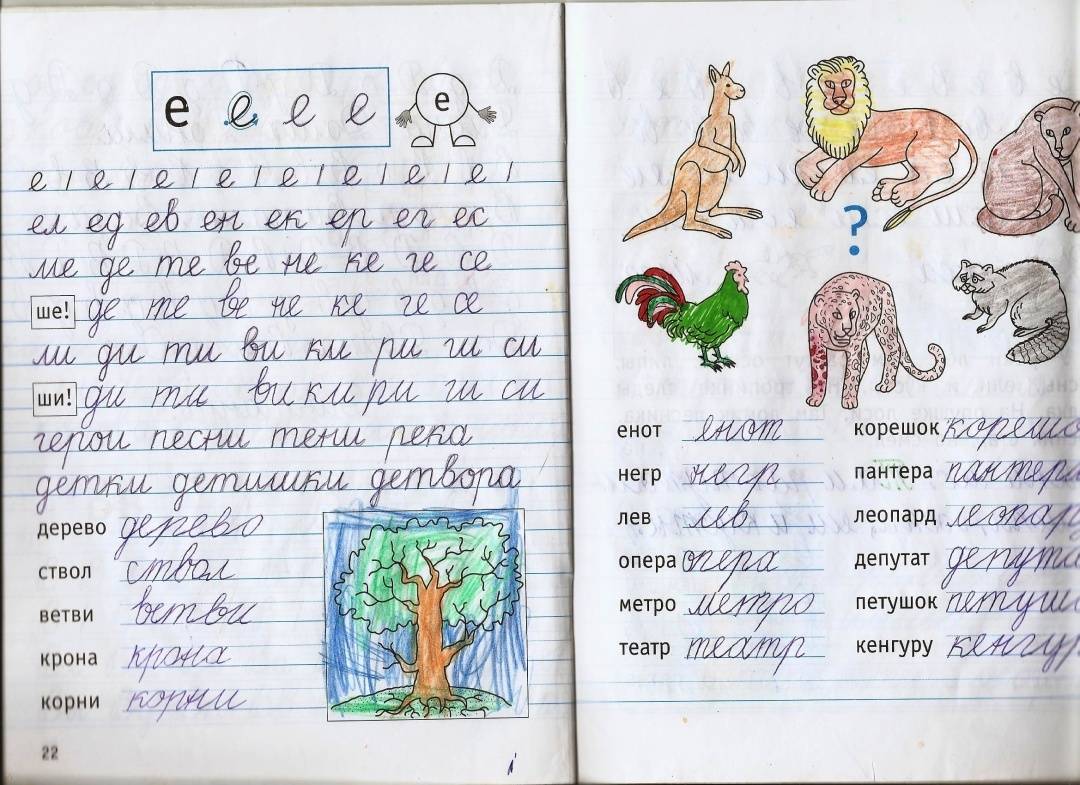 е е е е е
е е е е е е е е
ел ед ев ен ек ер ег ес
ме де те ве не ке ге се
ше! де те ве не ке ге се
ли ди ти ви ки ри ги си
ши! ди ти ви ки ри ги си
герои песни тени река
детки детишки детвора
дерево дерево
ствол ствол
ветви ветви
крона крона
корни корни
22
?
енот енот корешок корешо
негр негр пантера пантера
лев лев леопард леопар
опера опера депутат депута
метро метро петушок петуш
театр театр кенгуру кенгур